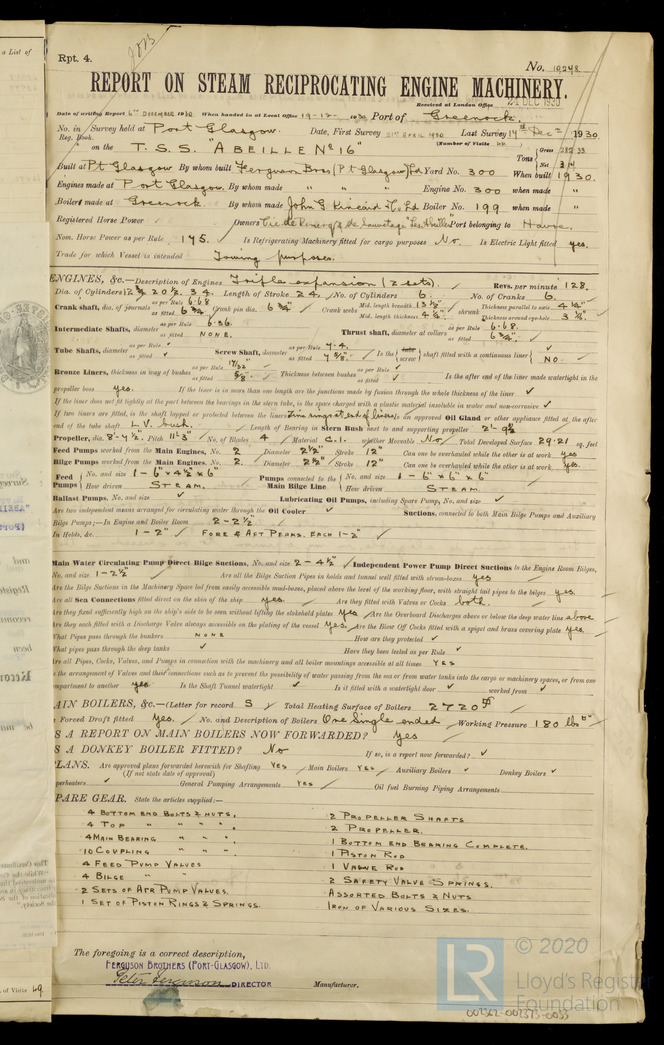 a List of
Rpt. 4.
No. 19248
REPORT ON STEAM RECIPROCATING ENGINE MACHINERY.
Received at London Office 21 DEC 1930
Date of writing Report 6th DECEMBER 1930 When handed in at Local Office 19-12-1930 Port of Greenock.
No. in Reg. Book. Survey held at Port Glasgow. Date, First Survey 21st APRIL 1930 Last Survey 17th Dec 1930
(Number of Visits
on the T.S.S. "ABEILLE No 16" Tons Gross 282.33 Net 3.14
Built at Pt Glasgow By whom built Ferguson Bros (Pt Glasgow) Ltd Yard No. 300 When built 1930.
Engines made at Port Glasgow By whom made " " " Engine No. 300 when made "
Boilers made at Greenock. By whom made John G Kincaid & Co. Ld Boiler No. 199 when made "
Registered Horse Power Owners Cie de Remorq & de Sauvetage "Les Abeilles" Port belonging to Havre.
Nom. Horse Power as per Rule 175. Is Refrigerating Machinery fitted for cargo purposes No. Is Electric Light fitted yes.
Trade for which Vessel is intended Towing purposes.
ENGINES, &c.—Description of Engines Triple expansion (2 sets). Revs. per minute 128.
Dia. of Cylinders 20½. 34. Length of Stroke 24. No. of Cylinders 6. No. of Cranks 6.
Crank shaft, dia. of journals as per Rule 6.68 as fitted 6¾ Crank pin dia. 6¾" Crank webs Mid. length breadth 13½" Mid. length thickness 4¼" shrunk Thickness parallel to axis 4¼" Thickness around eye-hole 3
Intermediate Shafts, diameter as per Rule 6.36. as fitted NONE. Thrust shaft, diameter at collars as per Rule 6.68. as fitted 6¾".
Tube Shafts, diameter as per Rule ✓ as fitted ✓ Screw Shaft, diameter as per Rule 7.4. as fitted 7⅝". Is the screw shaft fitted with a continuous liner NO.
Bronze Liners, thickness in way of bushes as per Rule 17/32 as fitted ⅝" Thickness between bushes as per Rule ✓ as fitted ✓ Is the after end of the liner made watertight in the
propeller boss yes. If the liner is in more than one length are the junctions made by fusion through the whole thickness of the liner ✓
If the liner does not fit tightly at the part between the bearings in the stern tube, is the space charged with a plastic material insoluble in water and non-corrosive ✓
If two liners are fitted, is the shaft lapped or protected between the liners Is an approved Oil Gland or other appliance fitted at the after
end of the tube shaft L.V. bush. Length of Bearing in Stern Bush next to and supporting propeller
Propeller, dia. 8'-4½. Pitch 11'3" No. of Blades 4 Material C.I. whether Moveable No Total Developed Surface 29.21 sq. feet
Feed Pumps worked from the Main Engines, No. 2 Diameter 2½" Stroke 12" Can one be overhauled while the other is at work yes
Bilge Pumps worked from the Main Engines, No. 2. Diameter 2½" Stroke 12" Can one be overhauled while the other is at work yes.
Feed Pumps No. and size 1-6"x4½x6" How driven STEAM. Pumps connected to the Main Bilge Line No. and size 1-6"x6"x6" How driven STEAM.
Ballast Pumps, No. and size ✓ Lubricating Oil Pumps, including Spare Pump, No. and size ✓
Are two independent means arranged for circulating water through the Oil Cooler ✓ Suctions, connected to both Main Bilge Pumps and Auxiliary
Bilge Pumps;—In Engine and Boiler Room 2-2½
In Holds, &c. 1-2" FORE & AFT PEAKS. EACH 1-2"
Main Water Circulating Pump Direct Bilge Suctions, No. and size 2-4½ Independent Power Pump Direct Suctions to the Engine Room Bilges,
No. and size 1-2½" Are all the Bilge Suction Pipes in holds and tunnel well fitted with strum-boxes yes
Are the Bilge Suctions in the Machinery Space led from easily accessible mud-boxes, placed above the level of the working floor, with straight tail pipes to the bilges yes.
Are all Sea Connections fitted direct on the skin of the ship yes. Are they fitted with Valves or Cocks both.
Are they fixed sufficiently high on the ship's side to be seen without lifting the stokehold plates yes Are the Overboard Discharges above or below the deep water line above
Are they each fitted with a Discharge Valve always accessible on the plating of the vessel yes. Are the Blow Off Cocks fitted with a spigot and brass covering plate yes.
What Pipes pass through the bunkers NONE How are they protected ✓
What pipes pass through the deep tanks ✓ Have they been tested as per Rule ✓
Are all Pipes, Cocks, Valves, and Pumps in connection with the machinery and all boiler mountings accessible at all times YES
the arrangement of Valves and their connections such as to prevent the possibility of water passing from the sea or from water tanks into the cargo or machinery spaces, or from one
partment to another yes. Is the Shaft Tunnel watertight ✓ Is it fitted with a watertight door ✓ worked from ✓
AIN BOILERS, &c.—(Letter for record S) Total Heating Surface of Boilers 2720
Forced Draft fitted Yes. No. and Description of Boilers One Single ended Working Pressure 180 lbs
S A REPORT ON MAIN BOILERS NOW FORWARDED? Yes
S A DONKEY BOILER FITTED? No If so, is a report now forwarded? ✓
LANS. Are approved plans forwarded herewith for Shafting YES Main Boilers YES Auxiliary Boilers ✓ Donkey Boilers ✓
(If not state date of approval)
perheaters ✓ General Pumping Arrangements YES Oil fuel Burning Piping Arrangements
PARE GEAR. State the articles supplied:—
4 BOTTOM END BOLTS & NUTS. 2 PROPELLER SHAFTS
4 TOP " " " " 2 PROPELLER.
4 MAIN BEARING " " " 1 BOTTOM END BEARING COMPLETE.
10 COUPLING " " " 1 PISTON ROD
4 FEED PUMP VALVES 1 VALVE ROD
4 BILGE " " 2 SAFETY VALVE SPRINGS.
2 SETS OF AIR PUMP VALVES. ASSORTED BOLTS & NUTS
1 SET OF PISTON RINGS & SPRINGS. IRON OF VARIOUS SIZES.
The foregoing is a correct description,
FERGUSON BROTHERS (PORT-GLASGOW), LTD.
Peter Ferguson DIRECTOR Manufacturer.
of Visits 49
LR © 2020
Lloyd's Register
Foundation
002362-002373-0033